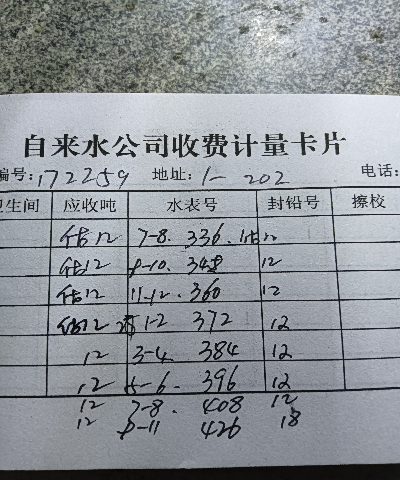 自来水公司收费计量卡片
编号:172259 地址:1-202 电话:
卫生间 应收吨 水表号 封铅号 擦校
估12 7-8. 336. 估12
估12 9-10. 348 12
估12 11-12. 360 12
估12 1-2 372 12
12 3-4. 384 12
12 5-6. 396 12
12 7-8. 408 12
12 9-11 426 18